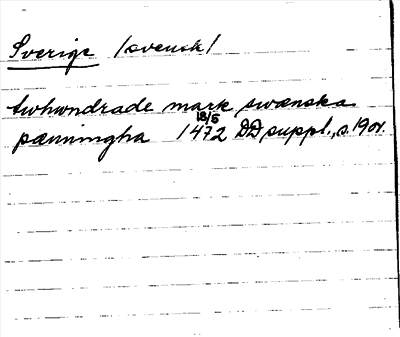 Sverige /svensk/
twhwndrade mark swænska
pænningha 18/5 1472 DD suppl., s. 19 ov.